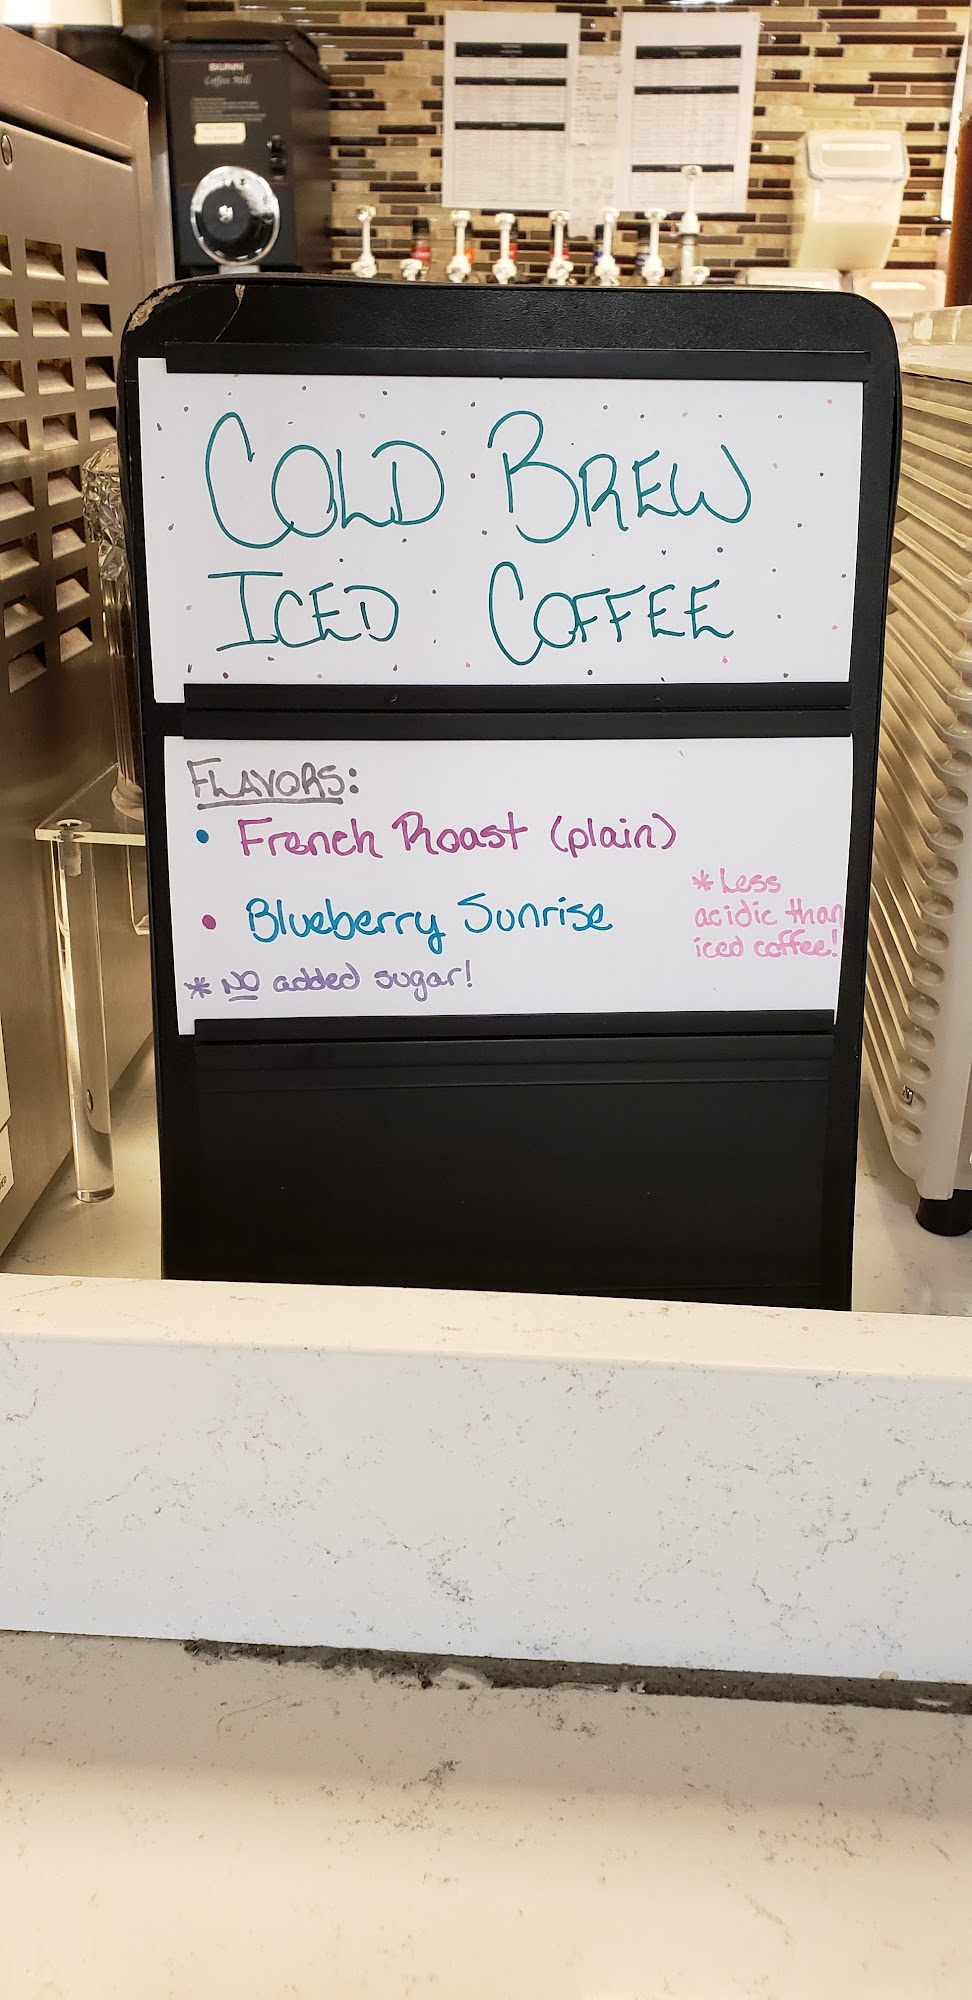 BUNN
Coffee Mill
COLD BREW
ICED COFFEE
FLAVORS:
• French Roast (plain)
• Blueberry Sunrise
* NO added sugar!
* Less
acidic than
iced coffee!